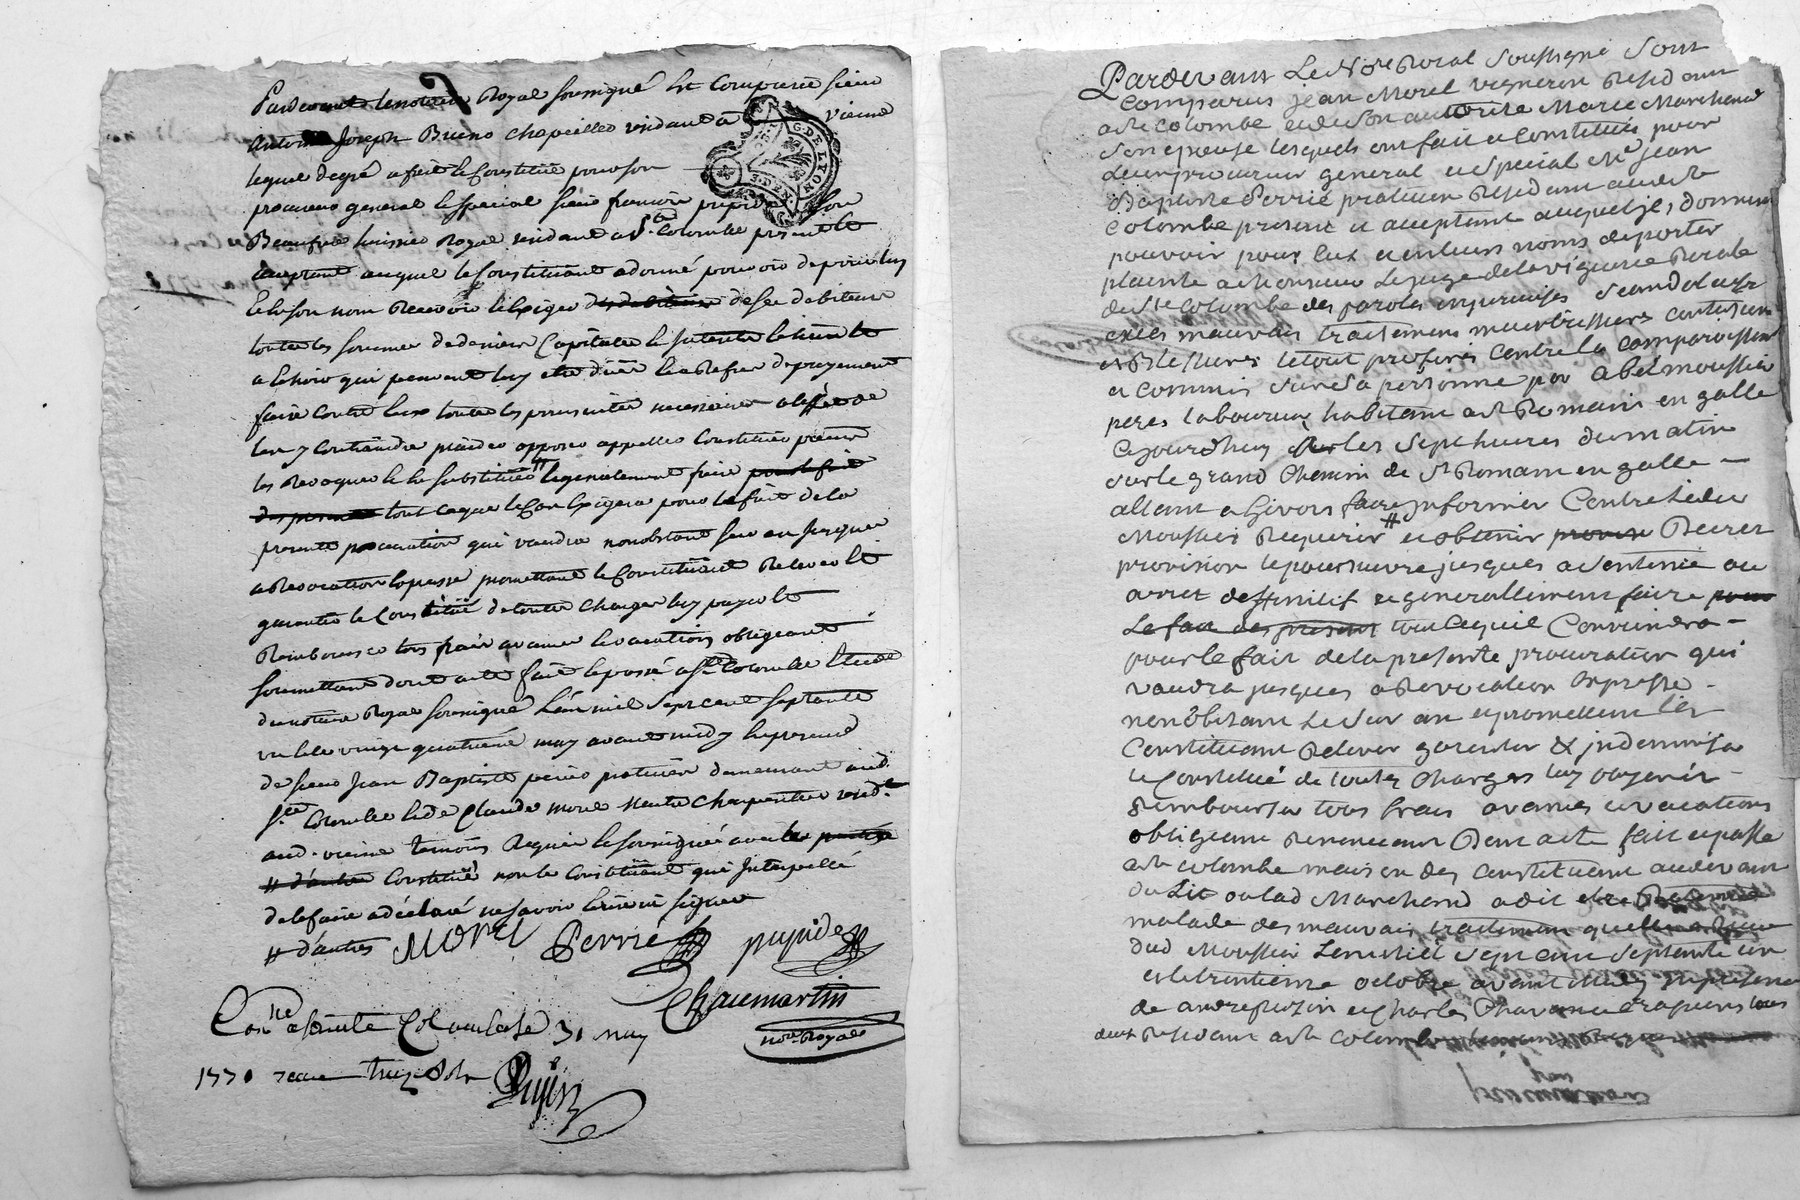 Pardevant le notaire Royal soussigné est Comparu sieur
Antoine Joseph Bruno Chapeilles residant a Vienne
lequel de gré a fait et Constitué pour son
procureur general et special sieur françois pupide son
Beaufrere huissier Royal residant a Ste Colombe present et
acceptant auquel le Constituant a donné pouvoir de pour luy
et en son nom Recevoir et exiger des debiteurs de ses debiteurs
toutes les sommes de deniers Capitaux et interets et tiers et
a échoir qui peuvent luy etre dües et a Refus de payement
faire contre eux toutes les poursuites necessaires a l'effet de
les y Contraindre plaider opposer appeller Constituer procureur
les Revoquer et substituer # et generalement faire pour le fait
des presentes tout ce que le Cas exigera pour le fait de la
presente procuration qui vaudra nonobstant sur an jusques
a Revocation expresse promettant le Constituant Relever et
garantir le Constitué de toutes Charges luy payer et
Rembourser tous frais avances et vacations obligeant
soumettant dont acte fait et passé a Ste Colombe Etude
du notaire Royal soussigné L'an mil sept cent septante
un et le vingt quatrieme may avant midy en presence
de sieur Jean Baptiste perrié praticien demeurant aud.
Ste Colombe et de Claude morel Maitre Charpentier resid.t
aud. vienne temoins Requis et soussignés avec les parties
# d'autres Constitué non le Constituant qui Interpellé
de le faire a déclaré ne savoir écrire ni signer
# d'autres MOREL Perrié pupide
Chaumartin
no.re Royal
Con.lé a Sainte Colombe le 31 may
1771 reçu treize sols
Pardevant Le No.re Roial soussigné sont
Comparus jean Morel vigneron Residant
a ste colombe et de son autorité Marie Marchand
son epouse lesquels ont fait et constitué pour
Leur procureur general et special M.e jean
Baptiste Perrié praticien Residant aud ste
colombe present et acceptant auquel ils donnent
pouvoir pour eux et en leurs noms de porter
plainte a Monsieur Le juge de la viguerie Roiale
de Ste Colombe des paroles injurieuses scandaleuses
excès mauvais traitemens meurtrissures contusions
et Blessures le tout proferés contre la comparoissante
et commis sur sa personne par abel moussier
peres laboureur habitant a st Romain en galle
Cejourdhuy sur les sept heures du matin
sur le grand Chemin de St Romain en galle –
allant a Givors faire informer Contre Ledit
Moussier Requerir # et obtenir provis Decret
provision et poursuivre jusques a Sentence ou
arret deffinitif et generallement faire pour
Le fait des presentes tout ce qu'il Conviendra –
pour le fait de la presente procuration qui
vaudra jusques a Revocation Expresse –
nonobstant Le Sur an et promettent les
Constituant Relever garentir & indemniser
le Constitué de toutes Charges luy payer et –
Rembourser tous frais avances et vacations
obligeant Renonceant Dont acte fait et passé
a ste colombe maison des constituant au devant
du Lit ou lad Marchand a dit etre Retenue
malade des mauvais traitemens quelle a Reçu
dud Moussier Lan mil sept cent septante un
et le trentieme octobre avant Midy en presence
de andre et Charles
deux Residant a ste colombe